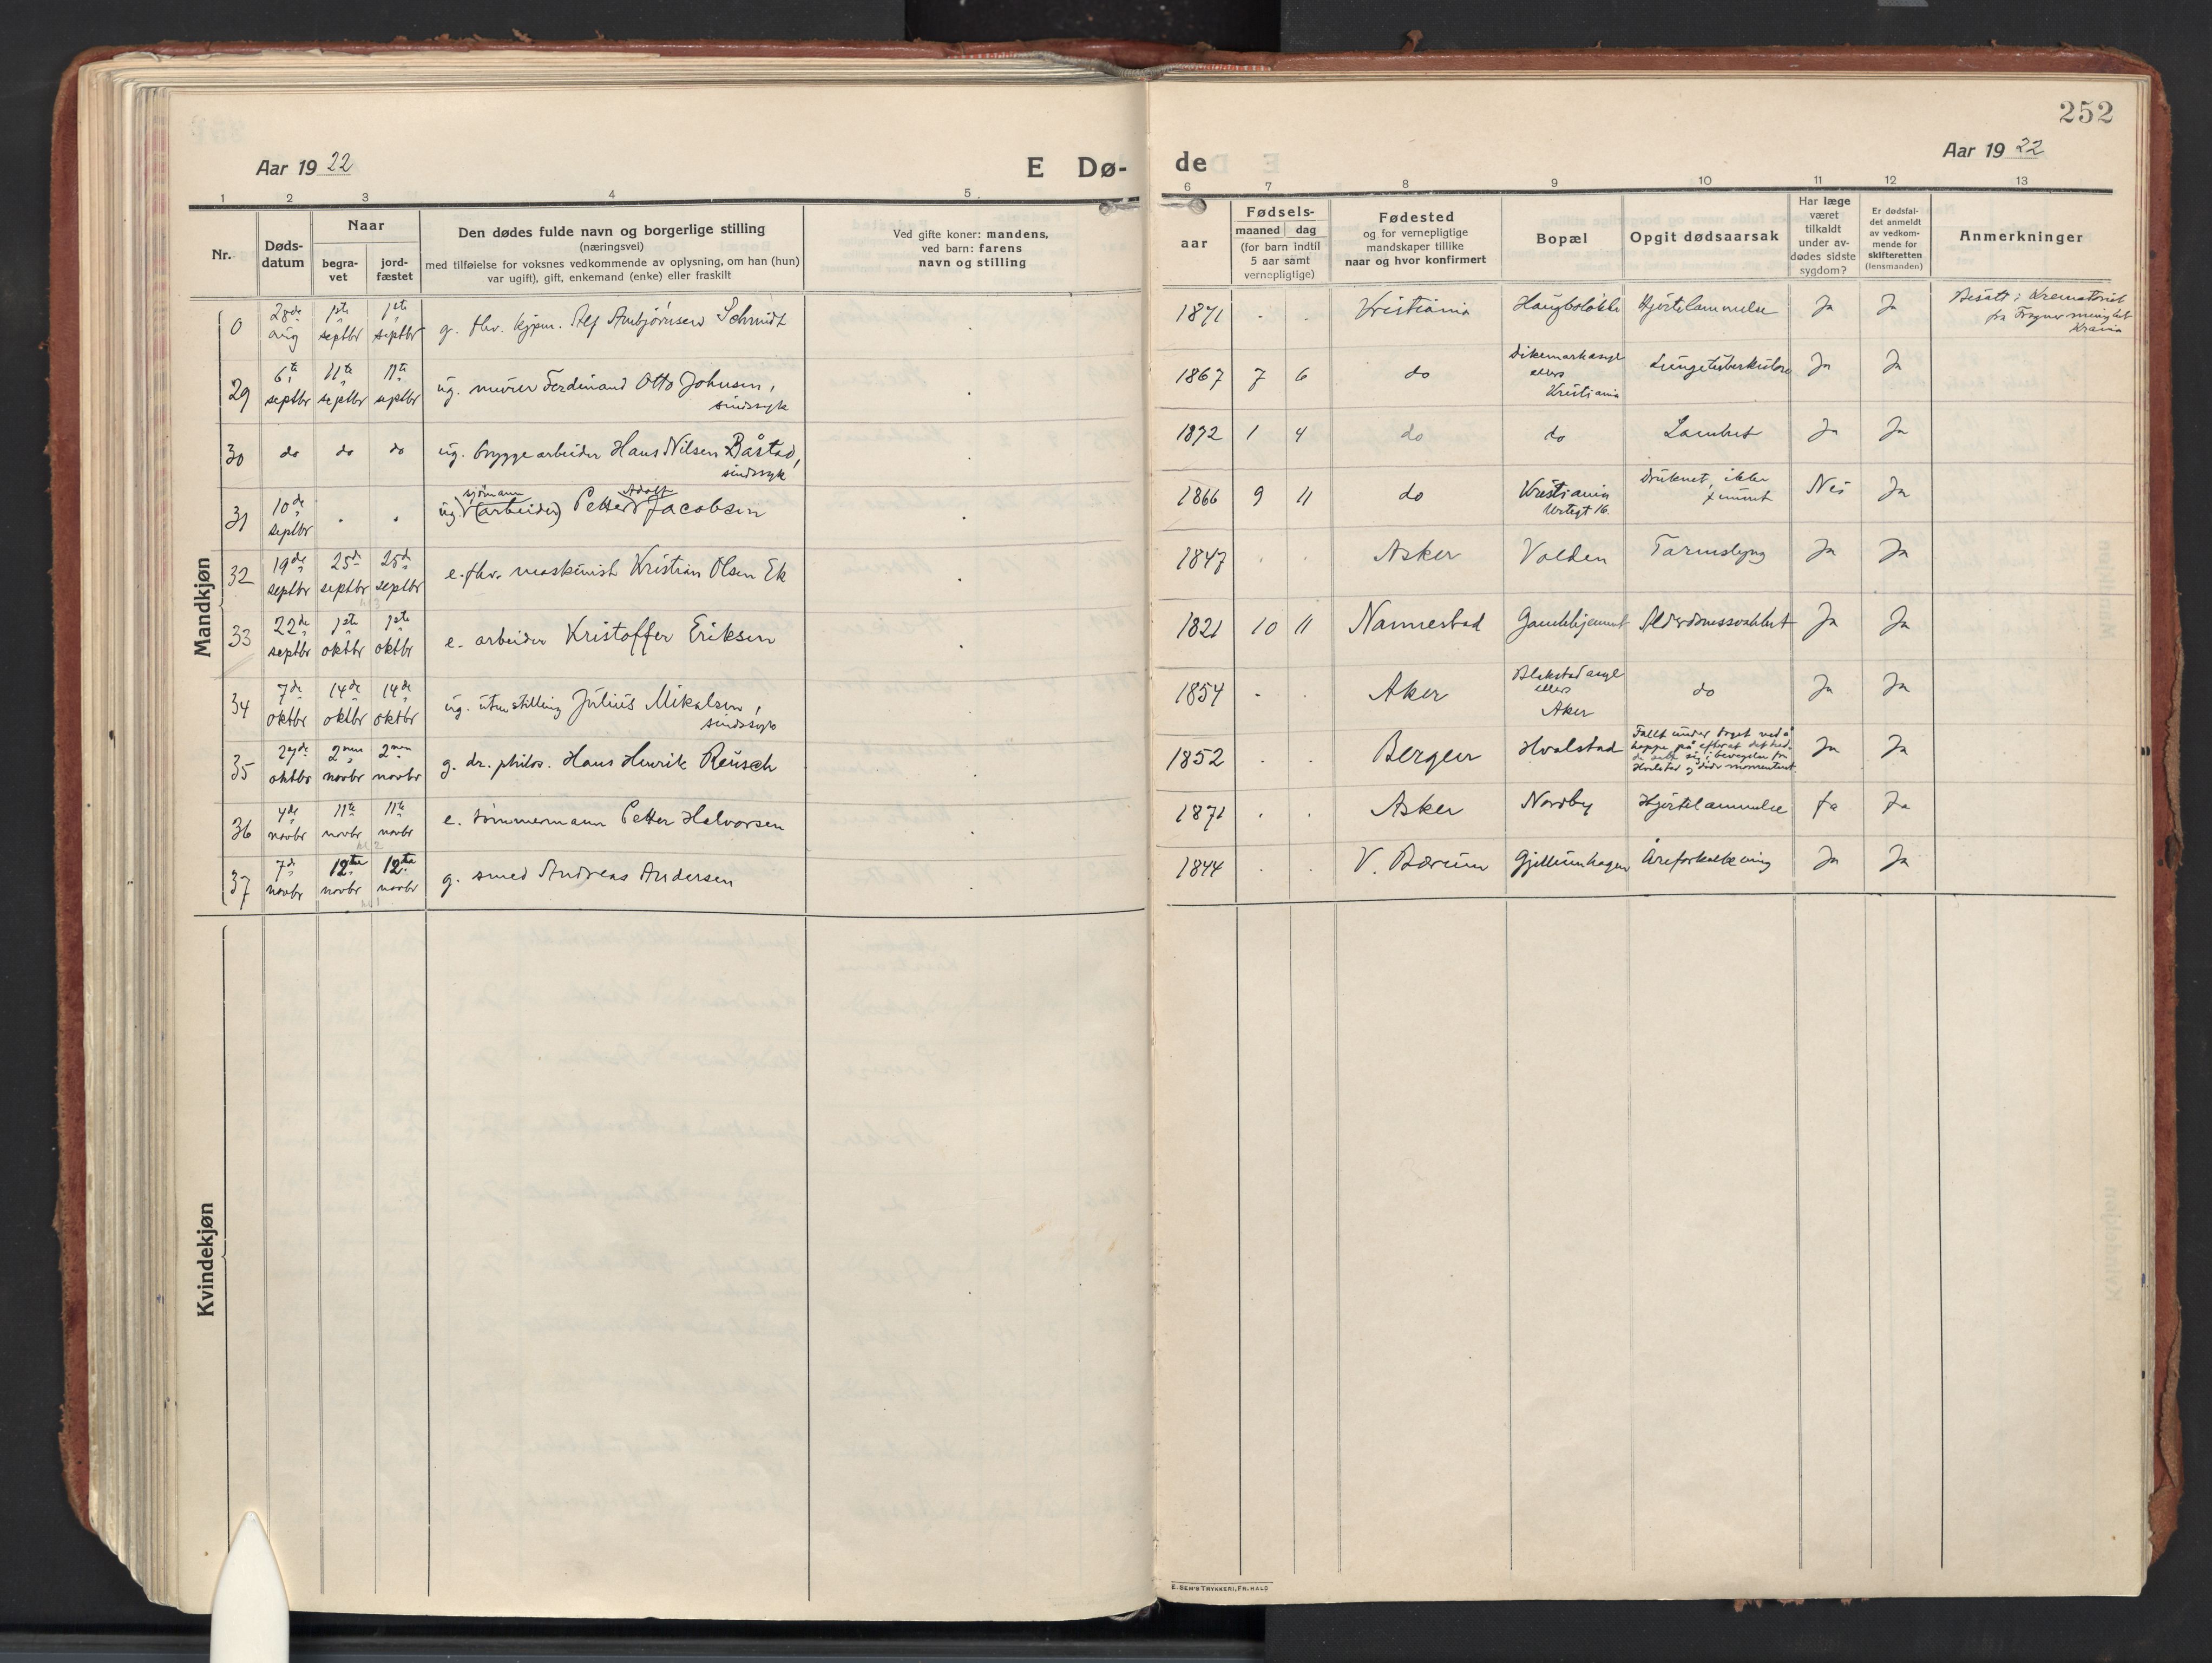 252
Aar 1922
E Dø-
de
Aar 1922
1 2 3 4 5 6 7 8 9 10 11 12 13
Nr.
Døds-
datum
Naar
begra-
vet
jord-
fæstet
Den dødes fulde navn og borgerlige stilling
(næringsvei)
med tilføielse for voksnes vedkommende av oplysning, om han (hun)
var ugift), gift, enkemand (enke) eller fraskilt
Ved gifte koner: mandens,
ved barn: farens
navn og stilling
aar
Fødsels-
maaned dag
(for barn indtil
5 aar samt
vernepligtige)
Fødested
og for vernepligtige
mandskaper tillike
naar og hvor konfirmert
Bopæl
Opgit dødsaarsak
Har læge
været
tilkaldt
under av-
dødes sidste
sygdom?
Er dødsfal-
det anmeldt
av vedkom-
mende for
skifteretten
(lensmanden)
Anmerkninger
Mandkjøn
0 28de aug 1ste septbr 1ste septbr g. fhv. kjøpm. Alf Arnbjørnsen Schmidt 1871 . . Kristiania Haugboløkke Hjertelammelse Ja Ja Besatt i Krematoriet
fra Frogner menighet
Krania
29 6te septbr 11te septbr 11te septbr ug. murer Ferdinand Otto Johnsen,
sindssyk . 1867 7 6 do Dikemark asyl
ellers
Kristiania Lungetuberkulose Ja Ja
30 do do do ug. bryggearbeider Hans Nilsen Båstad,
sindssyk 1872 1 4 do do Lamhet Ja Ja
31 10de septbr . . ug. sjømann (arbeider) Petter Adolf Jacobsen . 1866 9 11 do Kristiania
Vertsgt 16. Druknet, ikke
funnet Nei Ja
32 19de septbr 25de septbr 25de septbr e. fhv. maskinist Kristian Olsen Ek . 1847 . . Asker Volden Tarmslyng Ja Ja
33 22de septbr 1ste oktbr 1ste oktbr e. arbeider Kristoffer Eriksen . 1821 10 11 Nannestad Gamlehjemmet Alderdomssvakhet Ja Ja
34 7de oktbr 14de oktbr 14de oktbr ug. uten stilling Julius Mikalsen,
sindssyk . 1854 . . Aker Blakstad asyl
ellers
Aker do Ja Ja
35 27de oktbr 2nen novbr 2nen novbr g. dr. philos. Hans Henrik Reusch . 1852 . . Bergen Hvalstad Fallt under toget ved å
hoppe på efterat det hadde
satt sig i bevegelse fra
Hvalstad og døde momentant Ja Ja
36 4de novbr 11te novbr 11te novbr e. tømmermann Petter Halvorsen . 1871 . . Asker Nordby Hjertelammelse Ja Ja
37 7de novbr 12te novbr 12te novbr g. smed Andreas Andersen . 1844 . . V. Bærum Gjellumhagen Åreforkalkning Ja Ja
Kvindekjøn
E. SEM'S TRYKKERI, FR.HALD